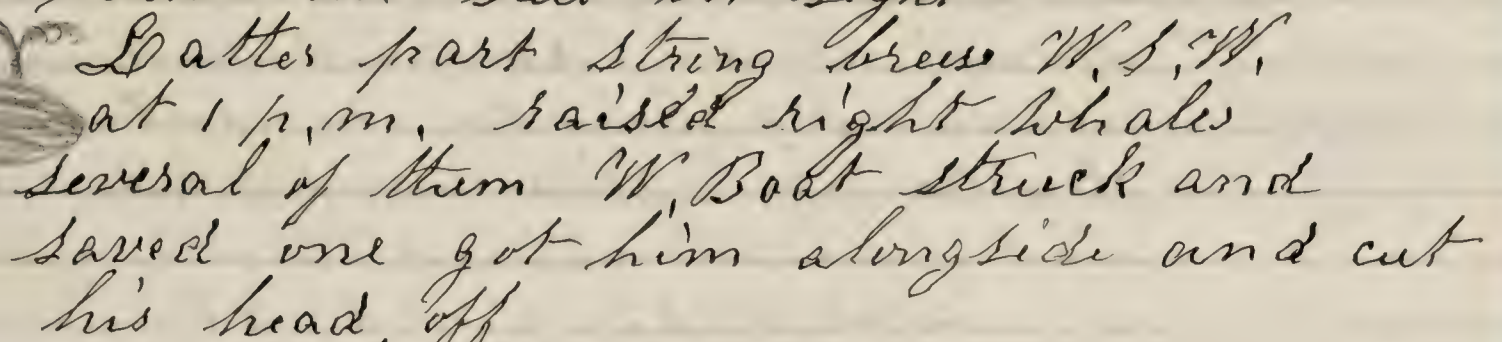 Latter part string breese W.S.W.
at 1 p.m. raised right whales
several of them W. Boat struck and
saved one got him alongside and cut
his head off